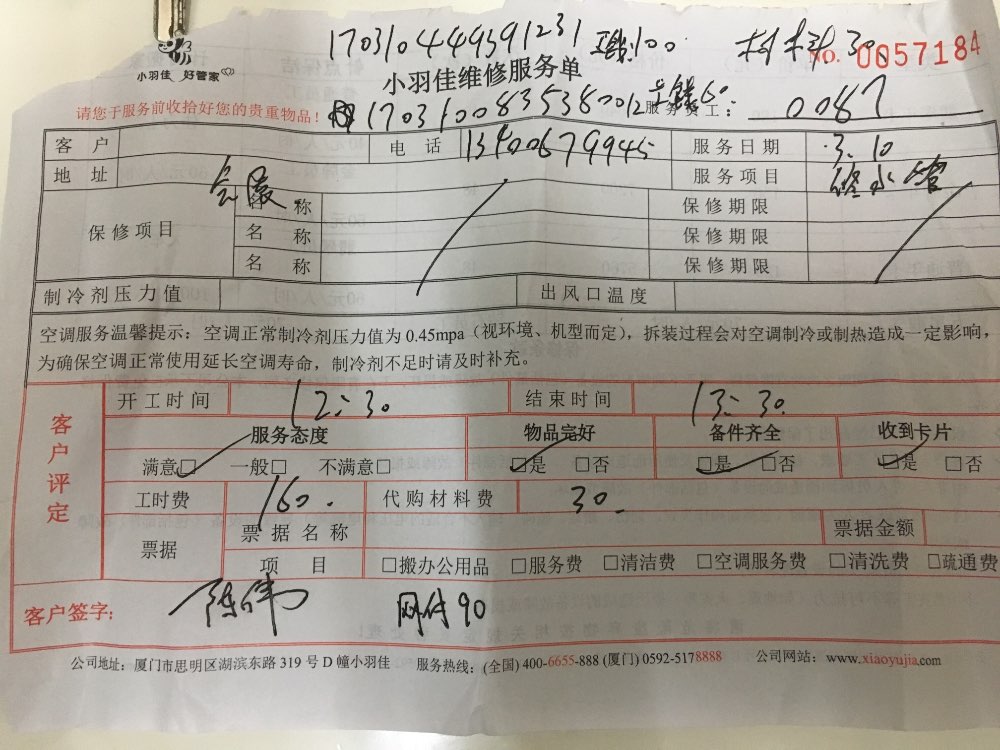 170310449391231 100 材料30
小羽佳 好管家
No. 0057184
小羽佳维修服务单
请您于服务前收拾好您的贵重物品!
170310083538001 60 服务员工: 0087
客户 电话 13400679945 服务日期 3.10
地址 服务项目 修水管
保修项目 名称 保修期限
名称 保修期限
名称 保修期限
制冷剂压力值 出风口温度
空调服务温馨提示: 空调正常制冷剂压力值为 0.45mpa (视环境、机型而定), 拆装过程会对空调制冷或制热造成一定影响,
为确保空调正常使用延长空调寿命, 制冷剂不足时请及时补充。
客户评定
开工时间 12:30 结束时间 13:30.
服务态度 物品完好 备件齐全 收到卡片
满意□ 一般□ 不满意□ □是 □否 □是 □否 □是 □否
工时费 160. 代购材料费 30.
票据 票据名称 票据金额
项目 □搬办公用品 □服务费 □清洁费 □空调服务费 □清洗费 □疏通费
客户签字: 陈伟 网付90
公司地址: 厦门市思明区湖滨东路 319 号 D 幢小羽佳 服务热线: (全国) 400-6655-888 (厦门) 0592-5178888 公司网站: www.xiaoyujia.com